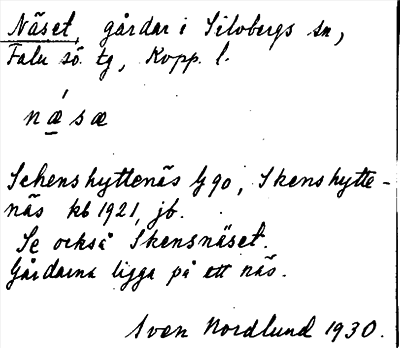 Näset, gårdar i Silvbergs sn,
Falu sö. tg, Kopp. l.
næ´sæ
Schenshyttenäs by 90, Skenshytte-
näs kb 1921, jb.
Se också Skensnäset.
Gårdarna ligga på ett näs.
Sven Nordlund 1930.